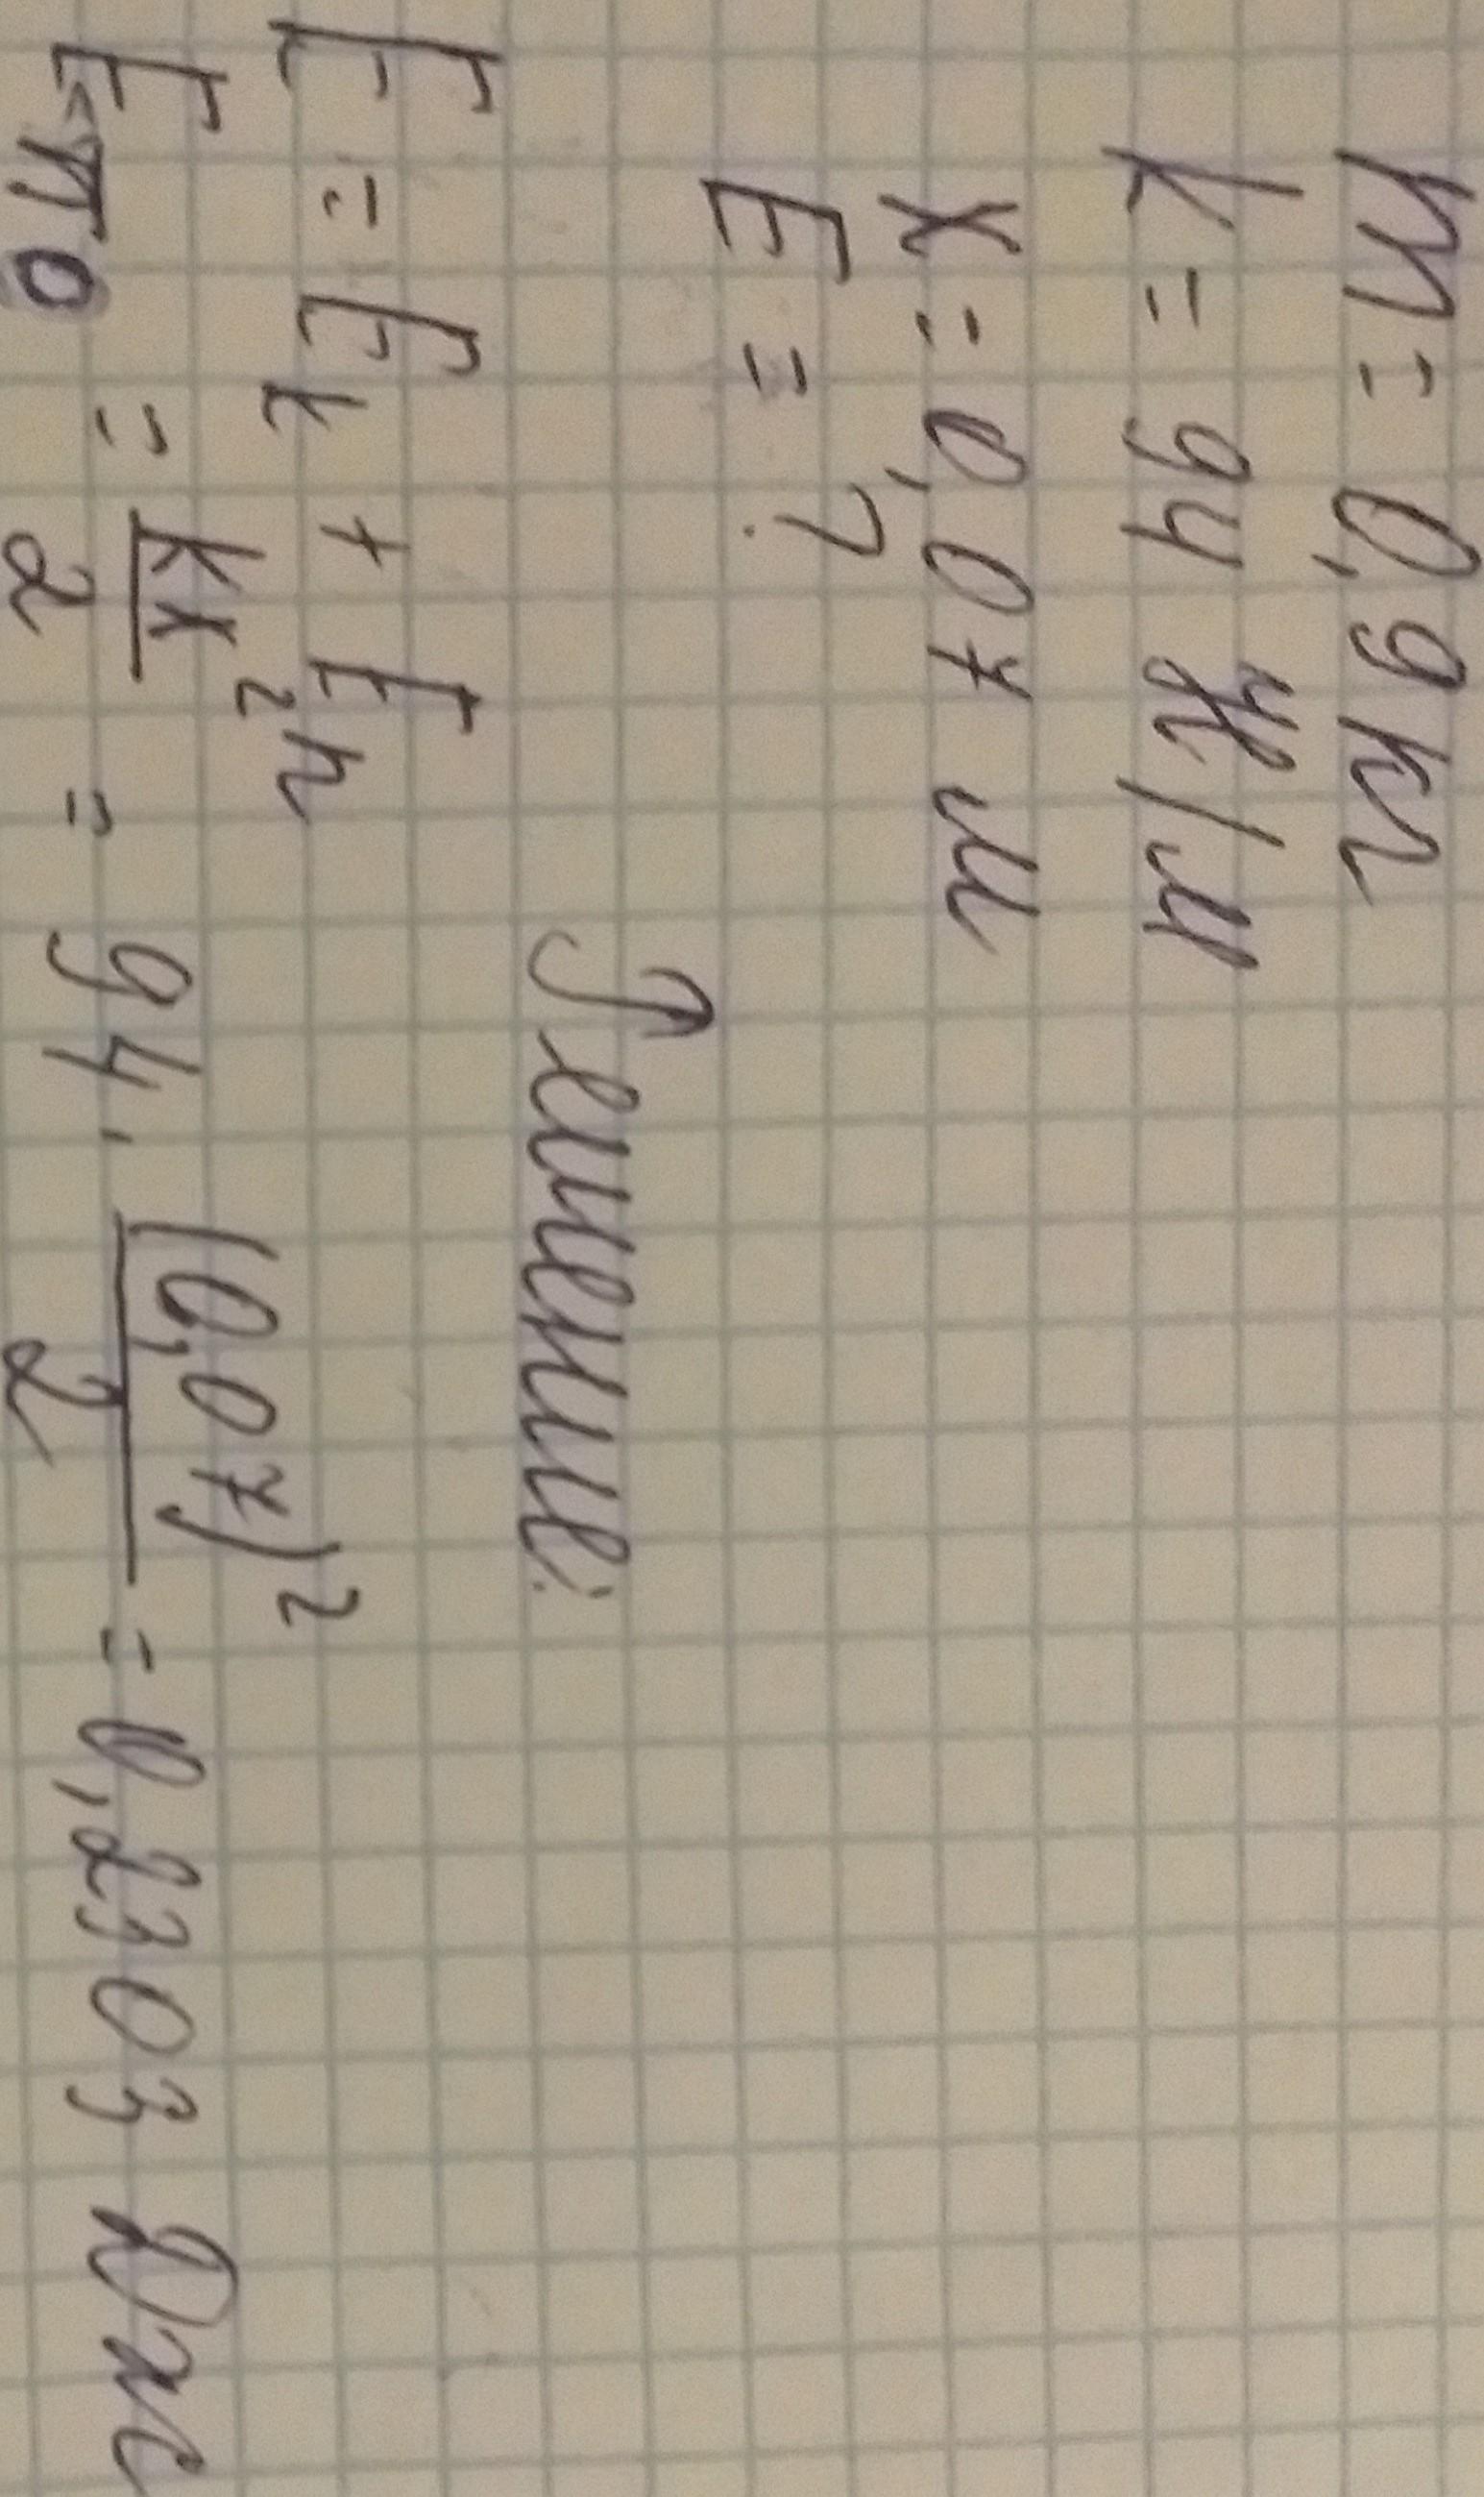 m = 0,9 кг
k = 94 Н/м
x = 0,07 м
E = ?
Решение:
E = Eк + Eп
Eп0 = kx²/2 = 94 · (0,07)²/2 = 0,2303 Дж